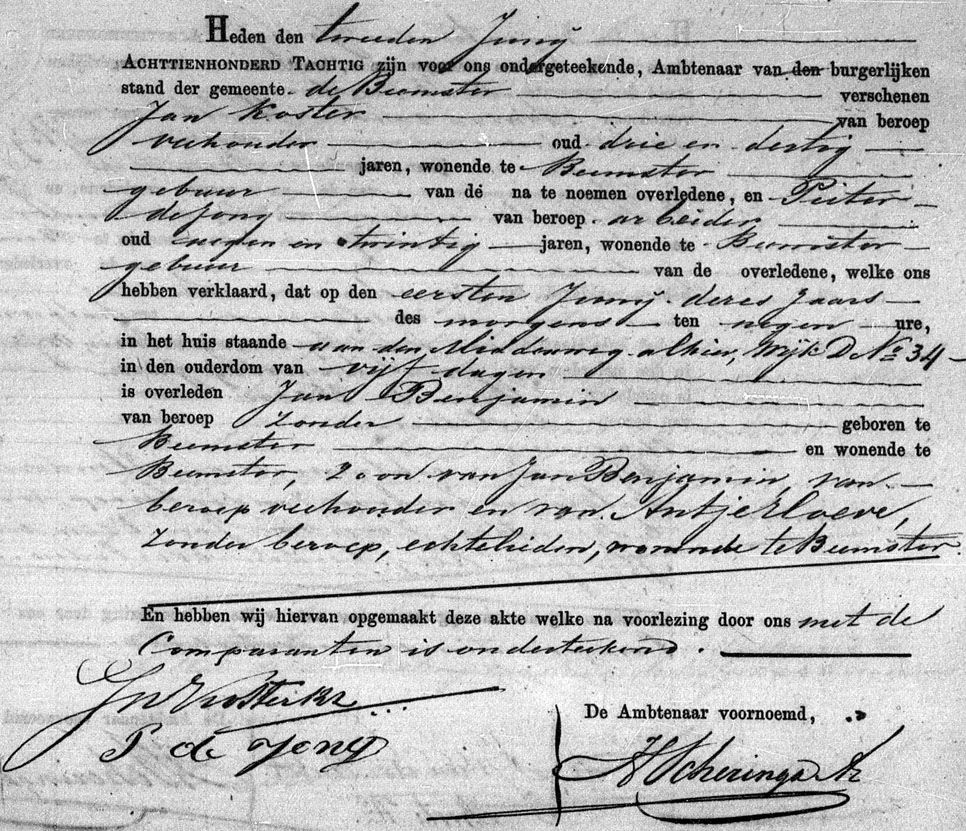 Heden den tweeden Junij
ACHTTIENHONDERD TACHTIG zijn voor ons ondergeteekende, Ambtenaar van den burgerlijken
stand der gemeente de Beemster verschenen
Jan Koster van beroep
veehouder oud drie en dertig
jaren, wonende te Beemster
gebuur van de na te noemen overledene, en Pieter
de Jong van beroep arbeider
oud negen en twintig jaren, wonende te Beemster
gebuur van de overledene, welke ons
hebben verklaard, dat op den eersten Junij dezes jaars
des morgens ten negen ure,
in het huis staande aan den Middenweg alhier, Wijk D No 34
in den ouderdom van vijf dagen
is overleden Jan Benjamin
van beroep zonder geboren te
Beemster en wonende te
Beemster, zoon van Jan Benjamin, van
beroep veehouder en van Antje Kloeve,
zonder beroep, echtelieden, wonende te Beemster.
En hebben wij hiervan opgemaakt deze akte welke na voorlezing door ons met de
Comparanten is onderteekend.
Jn Koster Kz
P de Jong
De Ambtenaar voornoemd,
H Scheringa Az